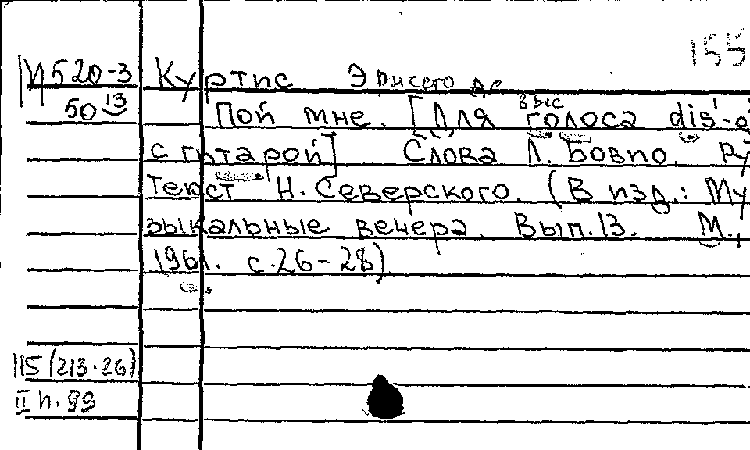 155
М520-3 Куртис Эрнесто де
50 13 Пой мне. [Для выс голоса dis'-
с гитарой] Слова Л. Бовио. Ру
Текст Н. Северского. (В изд.: Му
зыкальные вечера. Вып.13. М.,
1961. с.26-28)
115(213.26)
II н.99